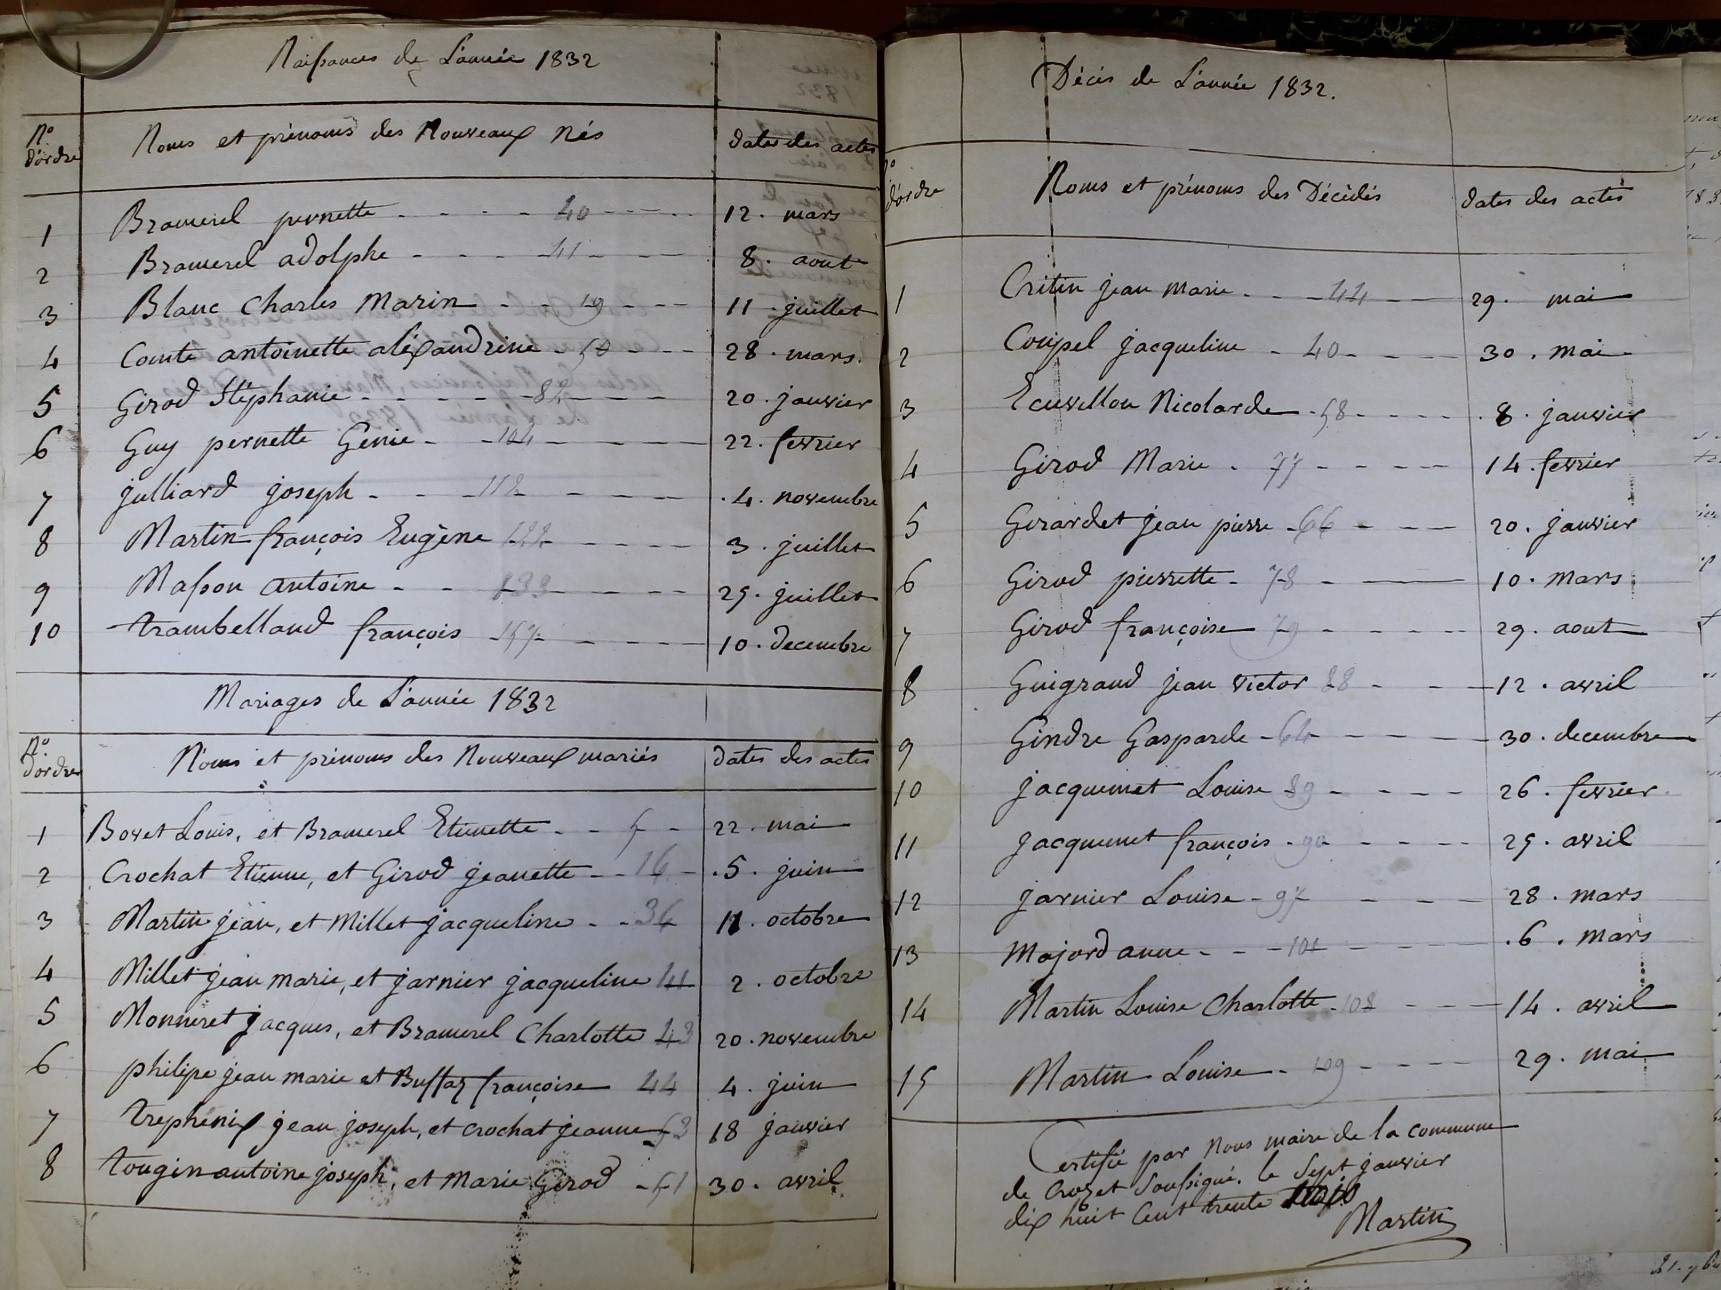 Naissances de L'année 1832
N.o d'ordre Noms et prénoms des Nouveaux Nés dates des actes
1 Bramerel pernette 40 12. mars
2 Bramerel adolphe 41 8. aout
3 Blanc Charles Marin 49 11. juillet
4 Comte antoinette aléxandrine 28. mars.
5 Girod Stéphanie 20. janvier
6 Guy pernette Génie 104 22. fevrier
7 julliard joseph 112 .4. novembre
8 Martin françois Eugène 122 3. juillet
9 Masson antoine 133 25. juillet
10 trambelland françois 157 10. decembre
Mariages de L'année 1832
N.o d'ordre Noms et prénoms des Nouveaux mariés dates des actes
1 Bovet Louis, et Bramerel Etiennette 5 22. mai
2 Crochat Etienne, et Girod jeanette 16 .5. juin
3 Martin jean, et Millet jacqueline 36 11. octobre
4 Millet jean marie, et jarnier jacqueline 41 2. octobre
5 Monneret jacques, et Bramerel Charlotte 43 20. novembre
6 philipe jean marie et Buffaz françoise 44 4. juin
7 trephénix jean joseph, et crochat jeanne 53 18 janvier
8 tougin antoine joseph, et Marie Girod 51 30. avril
Décès de L'année 1832.
N.o d'ordre Noms et prénoms des Décédés dates des actes
1 Critin jean marie 44 29. mai
2 Coupel jacqueline 40 30. mai
3 Ecuvillon Nicolarde 58 .8. janvier
4 Girod Marie 77 14. fevrier
5 Girardet jean pierre 66 20. janvier
6 Girod pierrette 78 10. mars
7 Girod françoise 79 29. aout
8 Guigrand jean victor 88 12. avril
9 Gindre Gasparde 64 30. decembre
10 jacquemet Louise 89 26. fevrier
11 jacquemet françois 90 25. avril
12 jarnier Louise 97 28. mars
13 Majord anne 101 .6. mars
14 Martin Louise Charlotte 108 14. avril
15 Martin Louise 109 29. mai
Certifié par Nous maire de la commune
de Crozet Soussigné. le Sept janvier
dix huit Cent trente trois
Martin